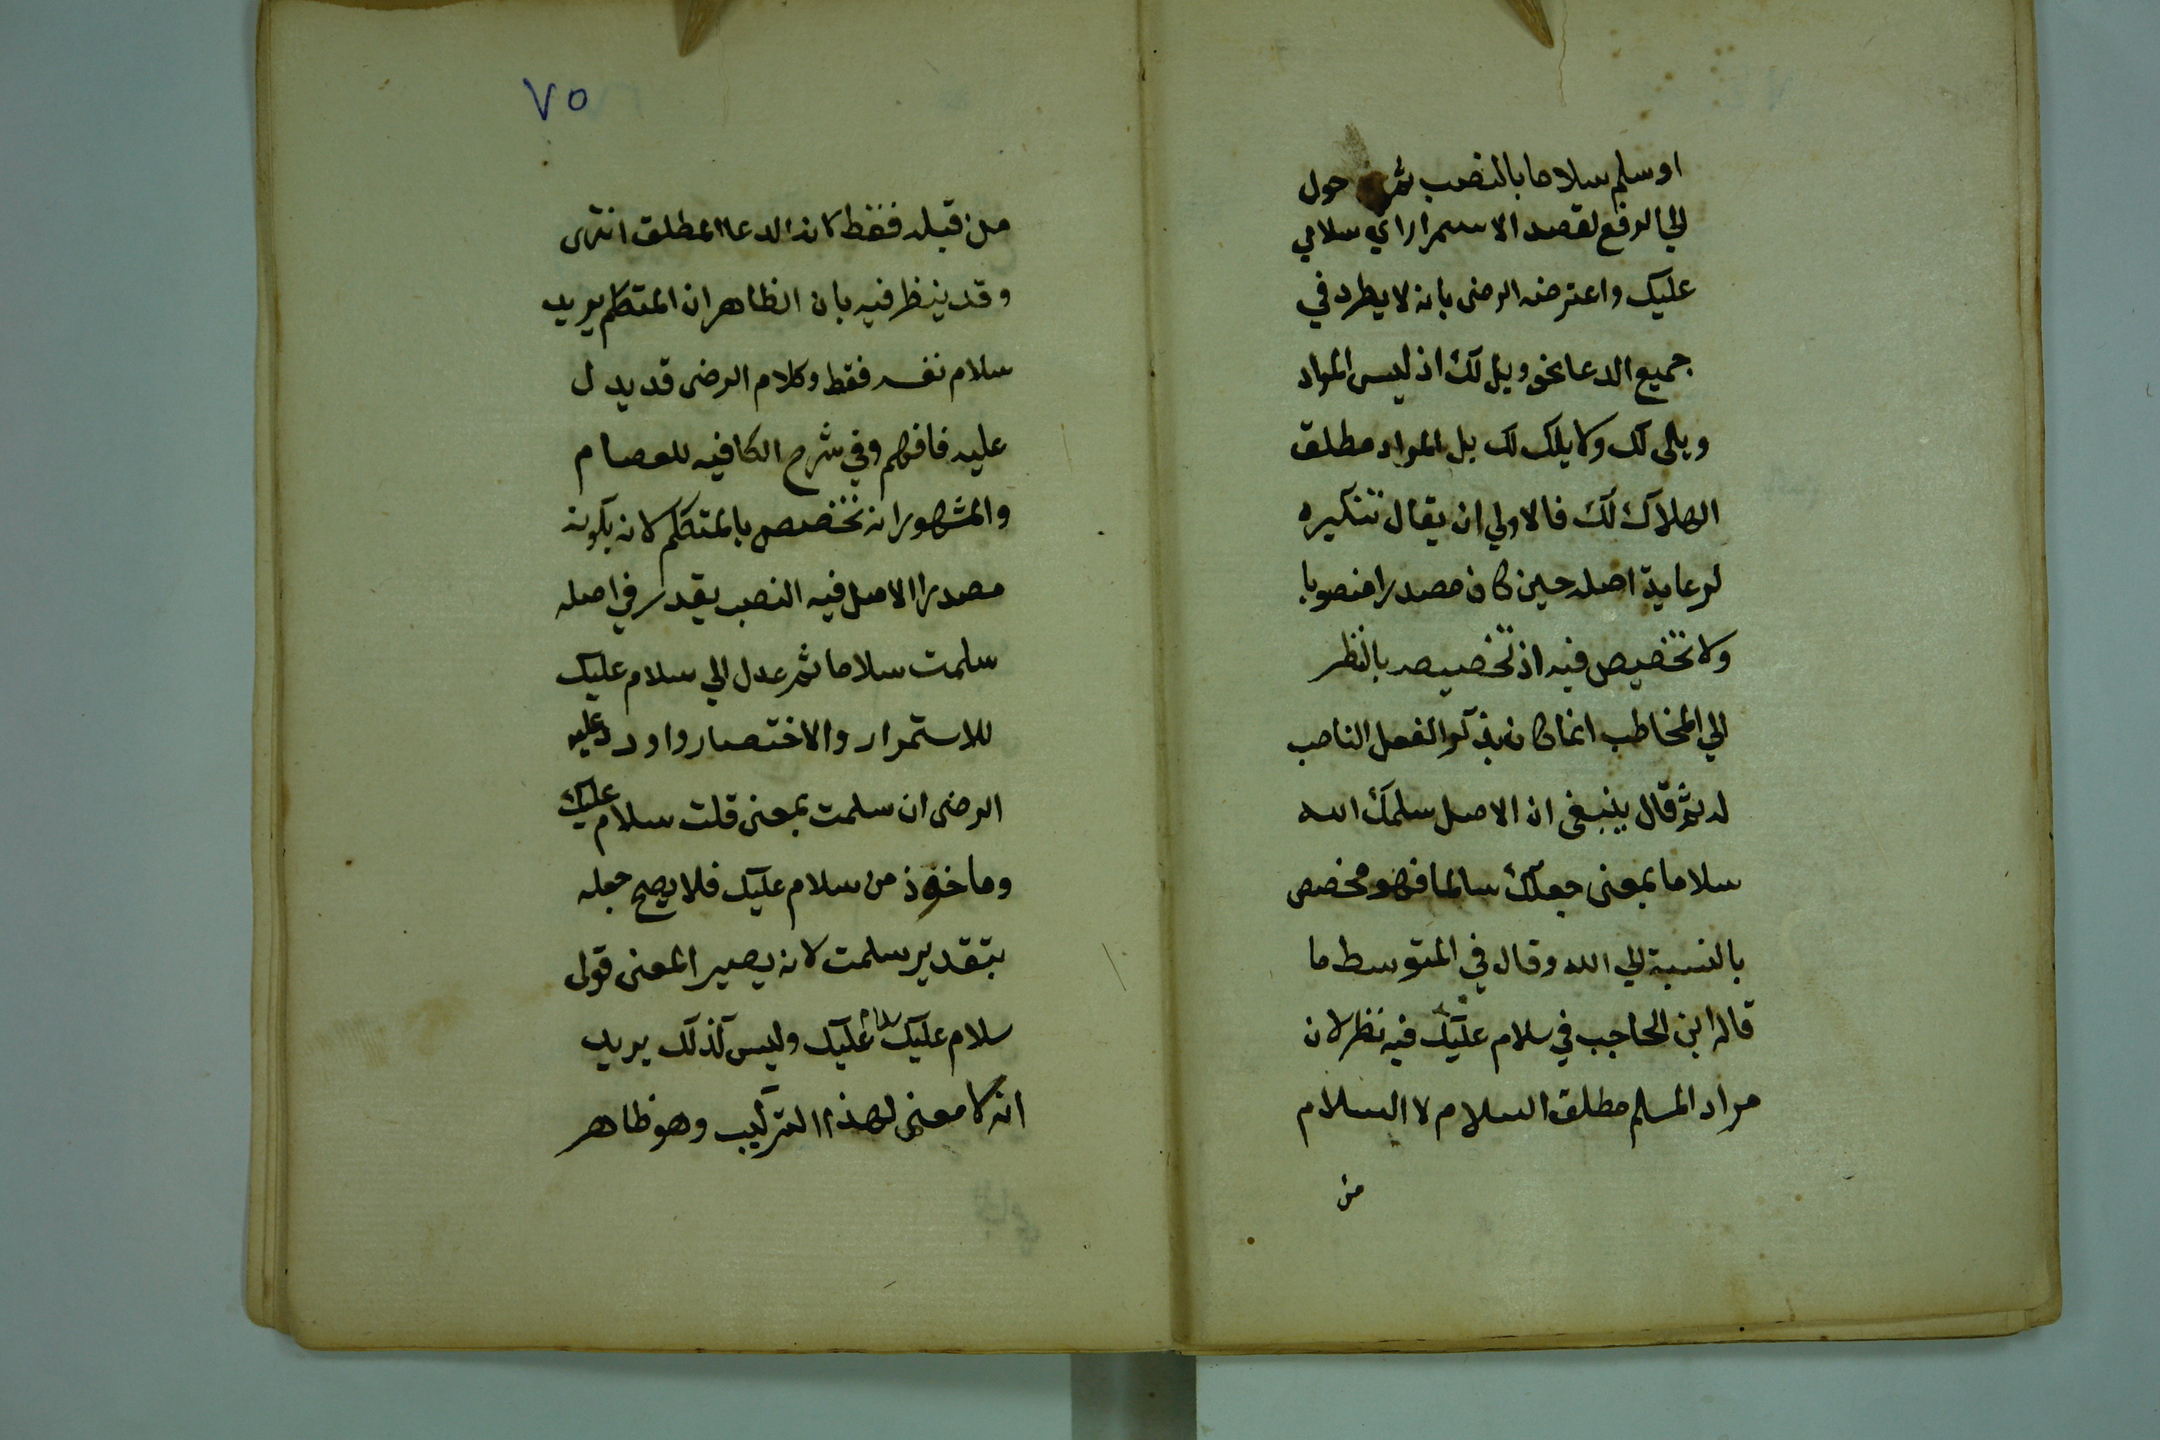 او سلم سلاما بالنصب ثم حول
الي الرفع لقصد الاستمرار اي سلامي
عليك واعترضه الرضى بانه لا يطرد في
جميع الدعا نحو ويل لك اذ ليس المراد
ويلى لك ولا يلك لك بل المراد مطلق
الهلاك لك فالاولي ان يقال تنكيره
لرعاية اصله حين كان مصدرا منصوبا
ولا تخصيص فيه اذ تخصيصه بالنظر
الي المخاطب انما كان بذكر الفعل الناصب
له ثم قال ينبغى ان الاصل سلمك الله
سلاما بمعنى جعلك سالما فهو مخصص
بالنسبة الي الله وقال في المتوسط ما
قاله ابن الحاجب في سلام عليك فيه نظر لان
مراد المسلم مطلق السلام لا السلام
من
٧٥
من قبله فقط كان الدعا المطلق انتهى
وقد ينظر فيه بان الظاهر ان المتكلم يريد
سلام نفسه فقط وكلام الرضى قد يدل
عليه فافهم وفي شرح الكافيه للعصام
والمشهور انه تخصيص بالمتكلم لانه بكونه
مصدرا الاصل فيه النصب يقدر في اصله
سلمت سلاما ثم عدل الي سلام عليك
للاستمرار والاختصار واورد عليه
الرضى ان سلمت بمعنى قلت سلام عليك
وماخوذ من سلام عليك فلا يصح جعله
بتقدير سلمت لانه يصير المعنى قولى
سلام عليك سلام عليك وليس كذلك يريد
انه لا معنى لهذا التركيب وهو ظاهر